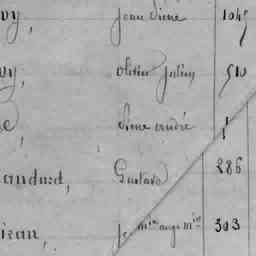 vy, jean Pierre 1045
vy, olivier julien 510
e, Pierre andré 1
andard, Gustave 286
izan, je mie ange mie 303